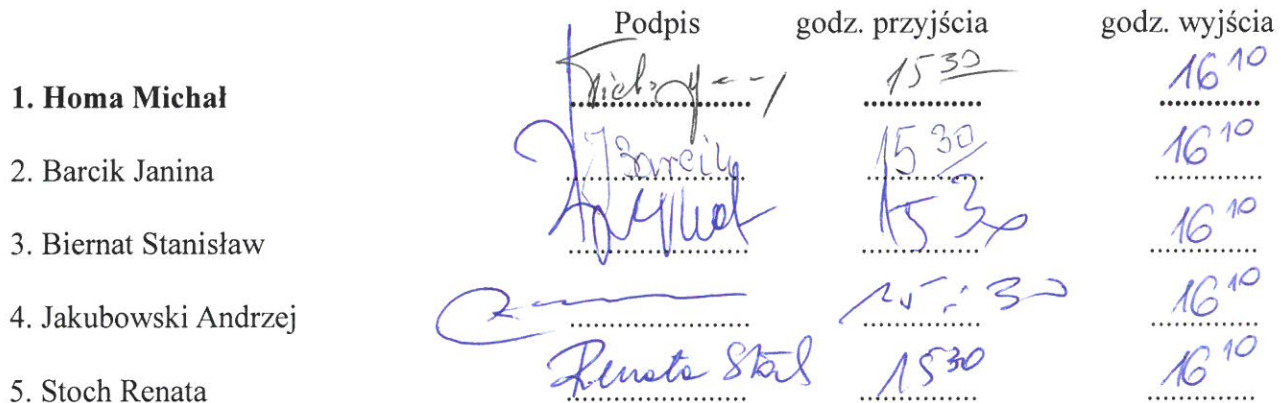 Podpis godz. przyjścia godz. wyjścia
1. Homa Michał 15 30 16 10
2. Barcik Janina JBarcik 15 30 16 10
3. Biernat Stanisław 15 30 16 10
4. Jakubowski Andrzej 15:30 16 10
5. Stoch Renata Renata Stoch 15 30 16 10